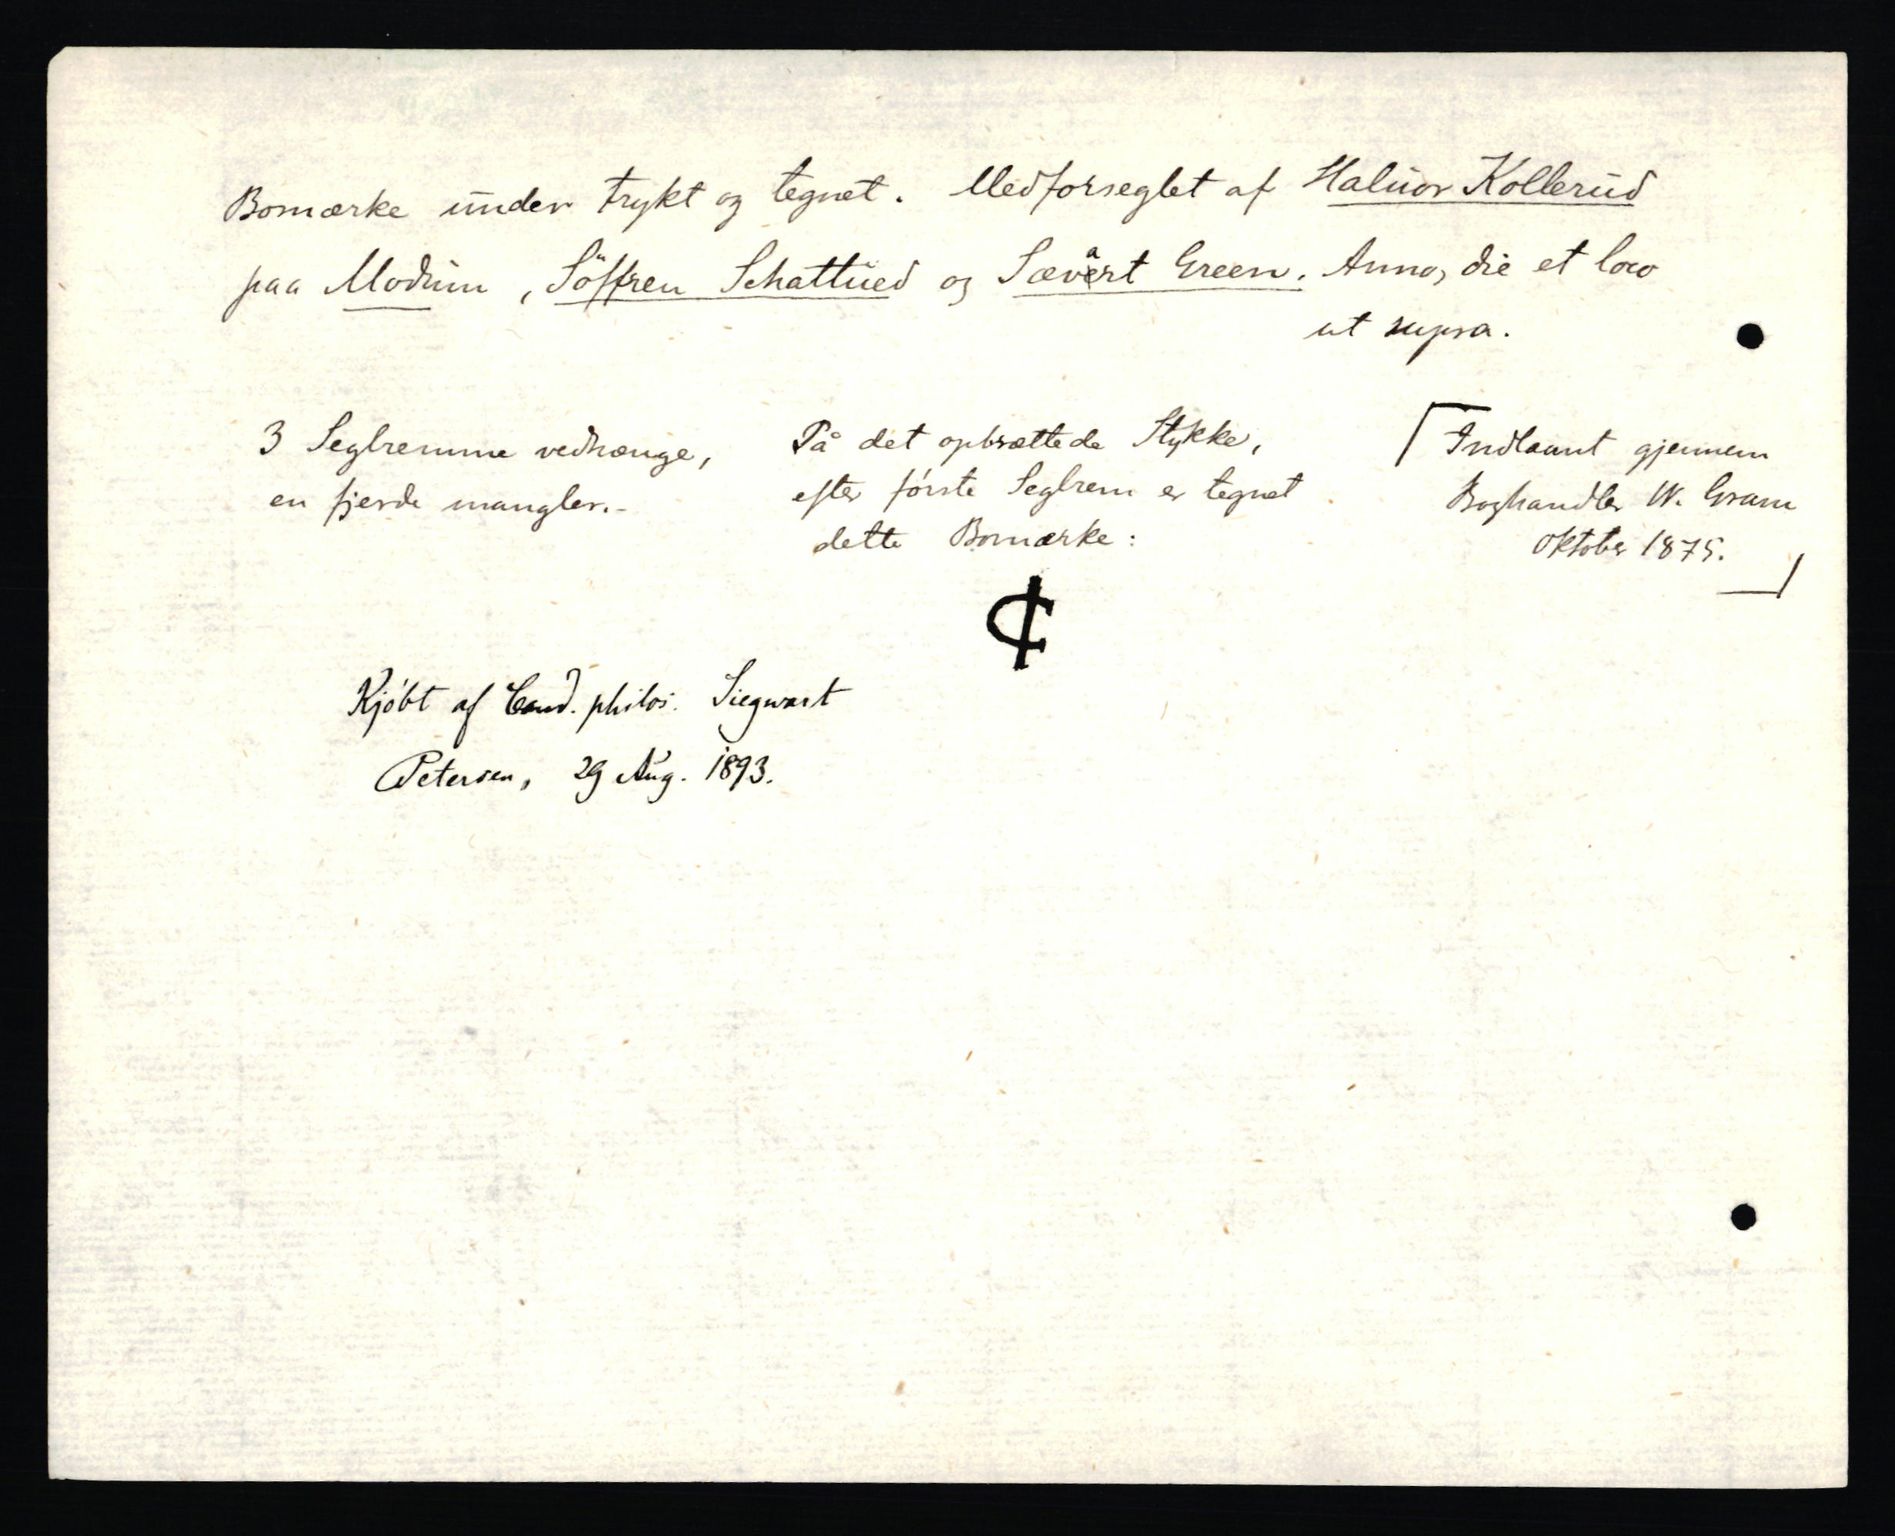 Bomærke under trykt og tegnet. Medforseglet af Haluor Kollerud
paa Modum, Söffren Schattued og Sævert Green. Anno, die et loco
ut supra.
3 Seglremme vedhænge,
en fjerde mangler.-
På det opbrættede Stykke,
efter første Seglrem er tegnet
dette Bomærke:
Indlaant gjennem
Boghandler W. Gram
Oktober 1875.
Kjöbt af Cand. philos. Siegwart
Petersen, 29 Aug. 1893.